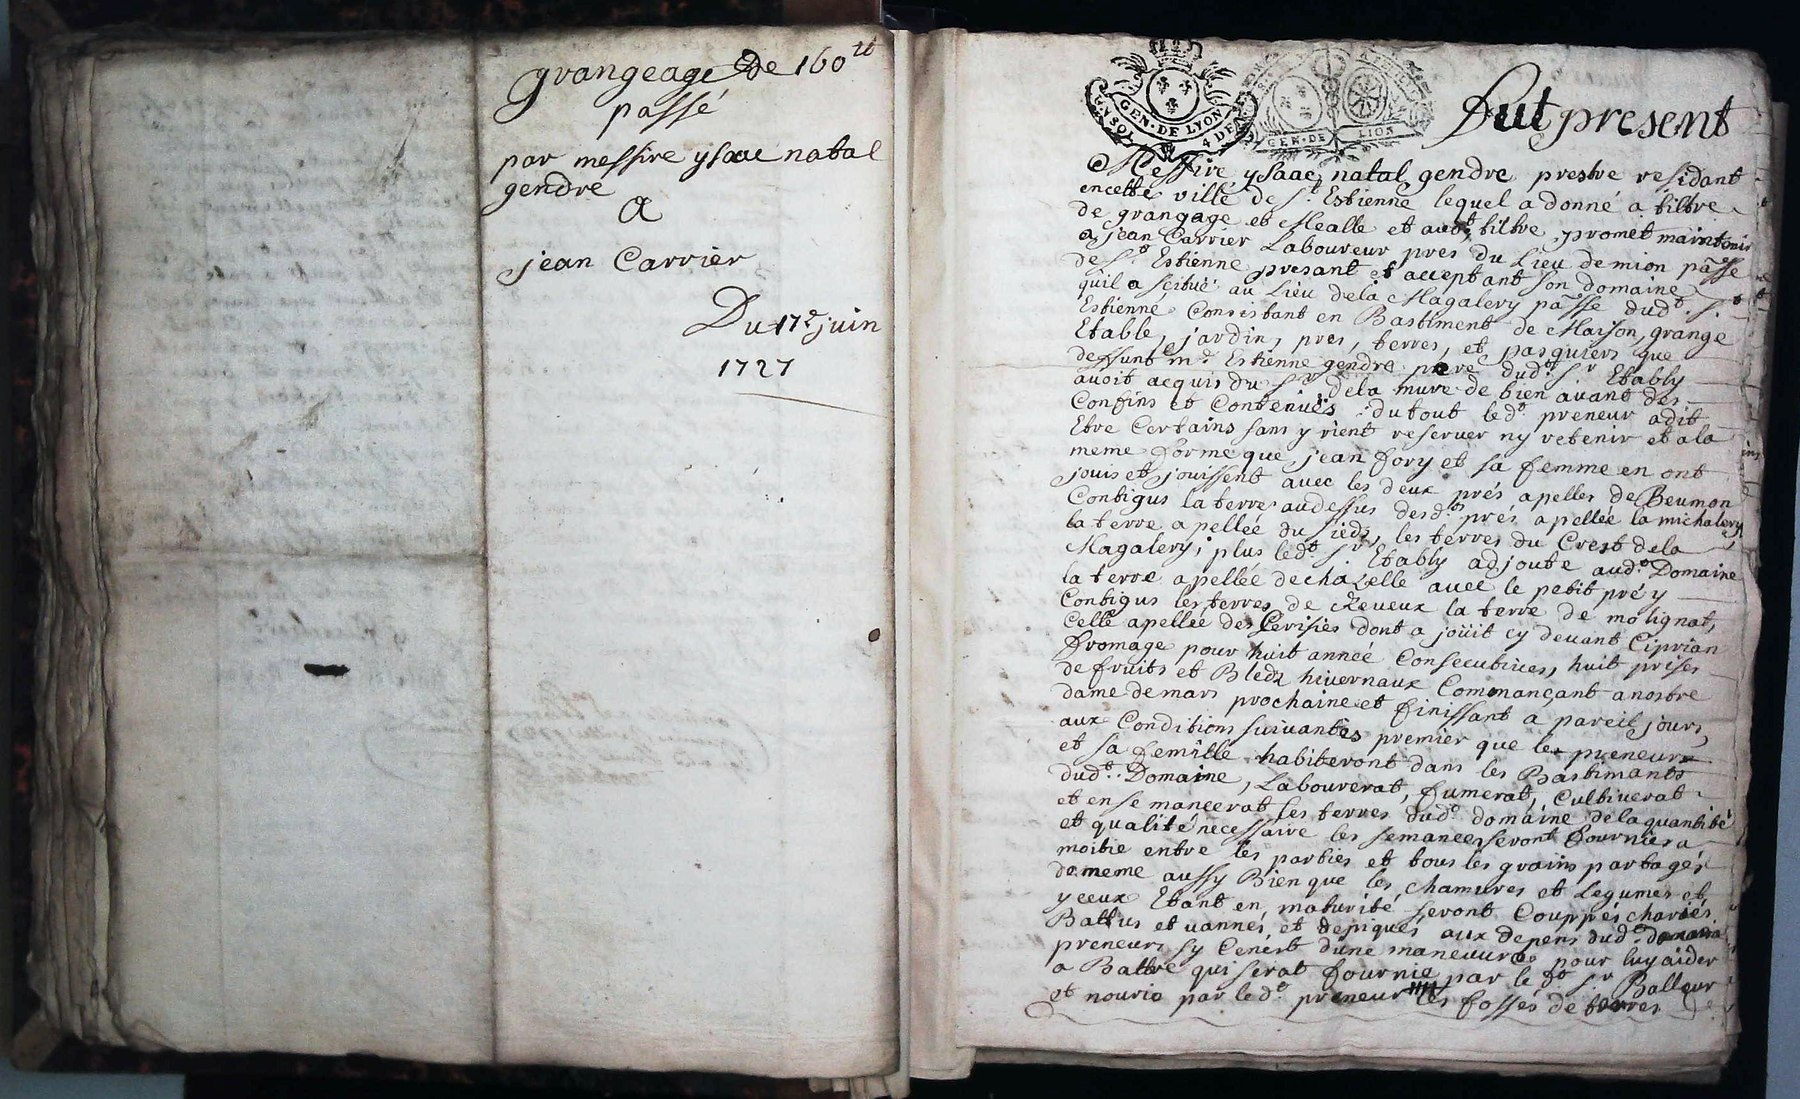 grangeage de 160ᵗᵗ
passé
par messire ysaac natal
gendre
a
jean Carrier
Du 17ᵉ juin
1727
GEN·DE LYON
GEN·DE LION
fut present
Messire ysaac natal gendre prestre residant
encette ville de Sᵗ Estienne lequel a donné a tiltre
de grangage et Mealle et autᵗ tiltre, promet maintenir
a jean Carrier Laboureur pres du Lieu de mion passe
de Sᵗ Estienne presant et acceptant son domaine
quil a scitué au Lieu dela Magalery passe dudᵗ Sᵗ
Estienne Consistant en Bastiment de Maison, grange
Etable, jardin, pres, terres, et pasquiers que
deffunt mʳ Estienne gendre pere dudᵗ Sʳ Etably
avoit acquis du Sʳ dela mure de bien avant des
Confins et Contenues du tout ledᵗ preneur adit
Etre Certains sans y rient reserver ny retenir et ala
meme forme que jean fory et sa femme en ont
jouis et jouissent avec les deux prés apelles de Beumon
Contigus la terre audessus desdᵗˢ prés apellée la michalery
la terre apellée du sieds, les terres du Crest dela
Magalery; plus ledᵗ Sʳ Etably adjoute audᵗ Domaine
la terre apellée de chazelle avec le petit pré y
Contigus les terres de cheveux la terre de molignat,
Celle apellée des Cerisies dont a joüit cy devant Ciprian
fromage pour huit année Consecutives, huit prises
de fruits et Bleds hivernaux Commançant a nostre
dame de mars prochaine et finissant a pareil jours,
aux Conditions suivantes premier que les preneurs
et sa famille habiteront dans les Bastimants
dudᵗ Domaine, Labourerat, fumerat, Cultiverat
et ensemancerat les terres dudᵗ domaine dela quantité
et qualité necessaire les semances seront fournies a
moitie entre les parties et tous les grains partagés
de meme aussy Bien que les chanvres et Legumes et
yceux Etant en maturité seront Couppés chariés
Battus et vannés et depiqués aux depens dudᵗ
preneur sy Cenest dune maneuvre pour luy aider
a Battre qui serat fournie par le dᵗ Sʳ Balleur
et nourie par ledᵗ preneur les fossés de terres